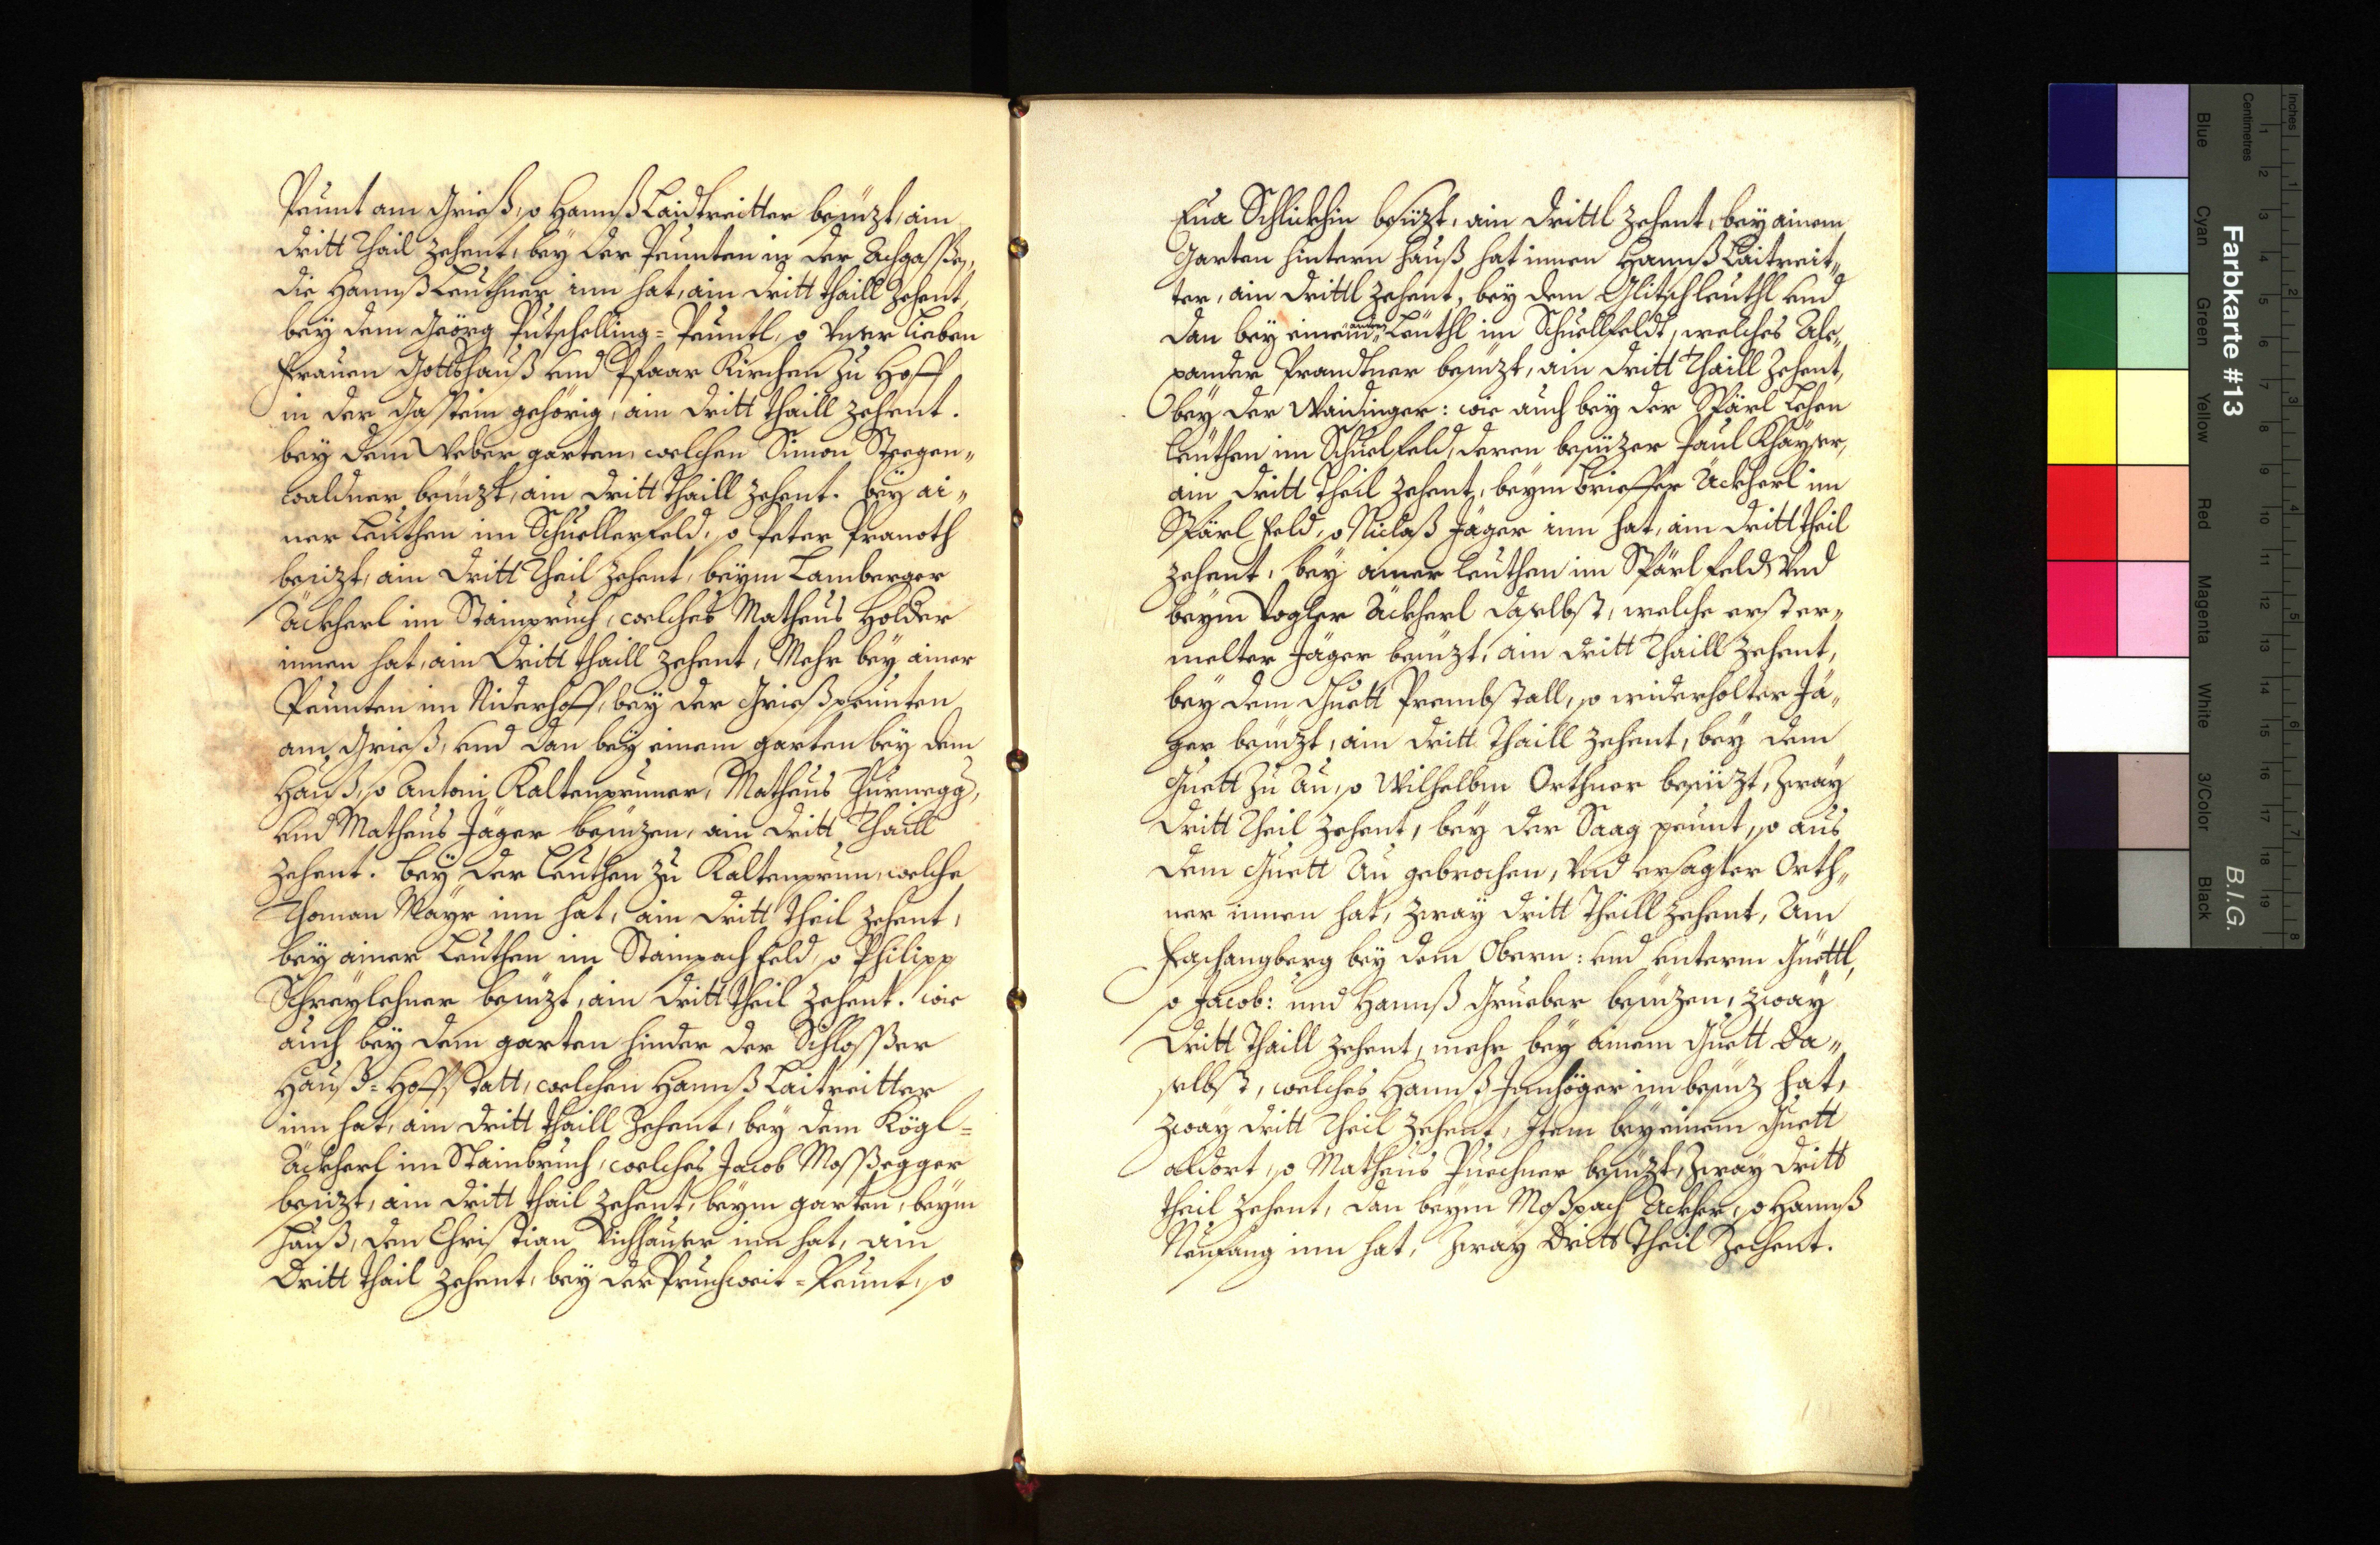 Peunt am Grieß, so Hannß Laidtreitter besüzt, ain
dritt Thail Zehent, bey der Peunten in der Achgassßen,
die Hannß Leuthner inn hat, ain dritt thaill Zehent,
bey dem Geörg Putschelling=Peuntl, so Unser Lieben
Frauen Gottshauß und Pfaar Kirchen zu Hoff
in der Gastein gehörig, ain dritt thaill zehent.
bey dem Weber garten, welchen Simon Steegen„
waldner besüzt, ain dritt Thaill zehent. bey ai„
ner Leuthen im Schuellerfeld, so Peter Franoth
besizt, ain dritt Theil Zehent, beym Lamberger
Äckherl im Stainpruch, welches Matheus Holder
innen hat, ain Dritt thaill zehent, Mehr bey ainer
Peunten im Niderhoff, bey der Grießpeunten
am Grieß, und dan bey einem garten bey dem
Hauß, so Antoni Kaltenprunner, Matheus Thurnegg,
und Matheus Jäger besüzen, ain dritt Thaill
zehent. bey der Leuthen zu Kaltenprunn, welche
Thoman Mayr inn hat, ain dritt theil zehent,
bey ainer Leuthen im Stainpach feld, so Philipp
Schreylehner besüzt, ain dritt theil zehent. wie
auch bey dem garten hinder der Schlossßer
Hauß=Hoffstatt, welchen Hannß Laitreitter
inn hat, ain dritt thaill Zehent, bey dem Kögl=
Äckherl im Stainbruch, welches Jacob Mossßegger
besizt, ain dritt thail zehent, beym garten, beym
Hauß, den Christian Vichhauser inn hat, ain
Dritt thail zehent, bey der Pruchweit=Peunt, so
Eua Schlickhin besüzt, ain drittl zehent, bey ainem
Garten hintern hauß hat innen Hannß Laitreit„
ter, ain drittl zehent, bey dem Glitschleuthl und
dan bey einem andern Leüthl im Schuellfeldt, welches Ale„
xander Prandtner besüzt, ain dritt Thaill Zehent,
bey der Waidinger: wie auch bey der Spärl Lehen
Leuthen im Schuelfeld, deren besüzer Paul Khayser,
ain dritt Theil zehent, beym brieffer Äckherl im
Spärl feld, so Niclaß Jäger inn hat, ain dritt theil
zehent, bey ainer Leuthen im Spärl feld Und
beym Vogler Äckherl daselbst, welche erster„
melter Jäger besüzt, ain dritt Thaill zehent,
bey dem Guett Prembstall, so widerholter Jä„
ger besüzt, ain dritt Thaill zehent, bey dem
Guett zu Au, so Wilhelbm Orthner besüzt, zway
dritt theil zehent, bey der Saag peunt, so aus
dem Guett Au gebrochen, Und ersagter Orth„
ner innen hat, zway dritt Theill zehent, Am
Fachangberg bey dem Obern: und unterm Güettl,
so Jacob: und Hannß Grueber besüzen, zway
Dritt Thaill zehent, mehr bey ainem Guett da„
selbst, welches Hannß Junhöger im besüz hat,
zway dritt Theil zehent, Item bey einem Guett
aldort, so Matheus Puechner besüzt, zway dritt
theil zehent, dan beym Moßpach Äckher, so Hannß
Neufang inn hat, zway Dritt Theil Zechent.
Farbkarte #13
B.I.G.
Inches
Centimetres
Blue
Cyan
Green
Yellow
Red
Magenta
White
3/Color
Black
1
2
3
4
5
6
7
8
9
10
11
12
13
14
15
16
17
18
19
1
2
3
4
5
6
7
8